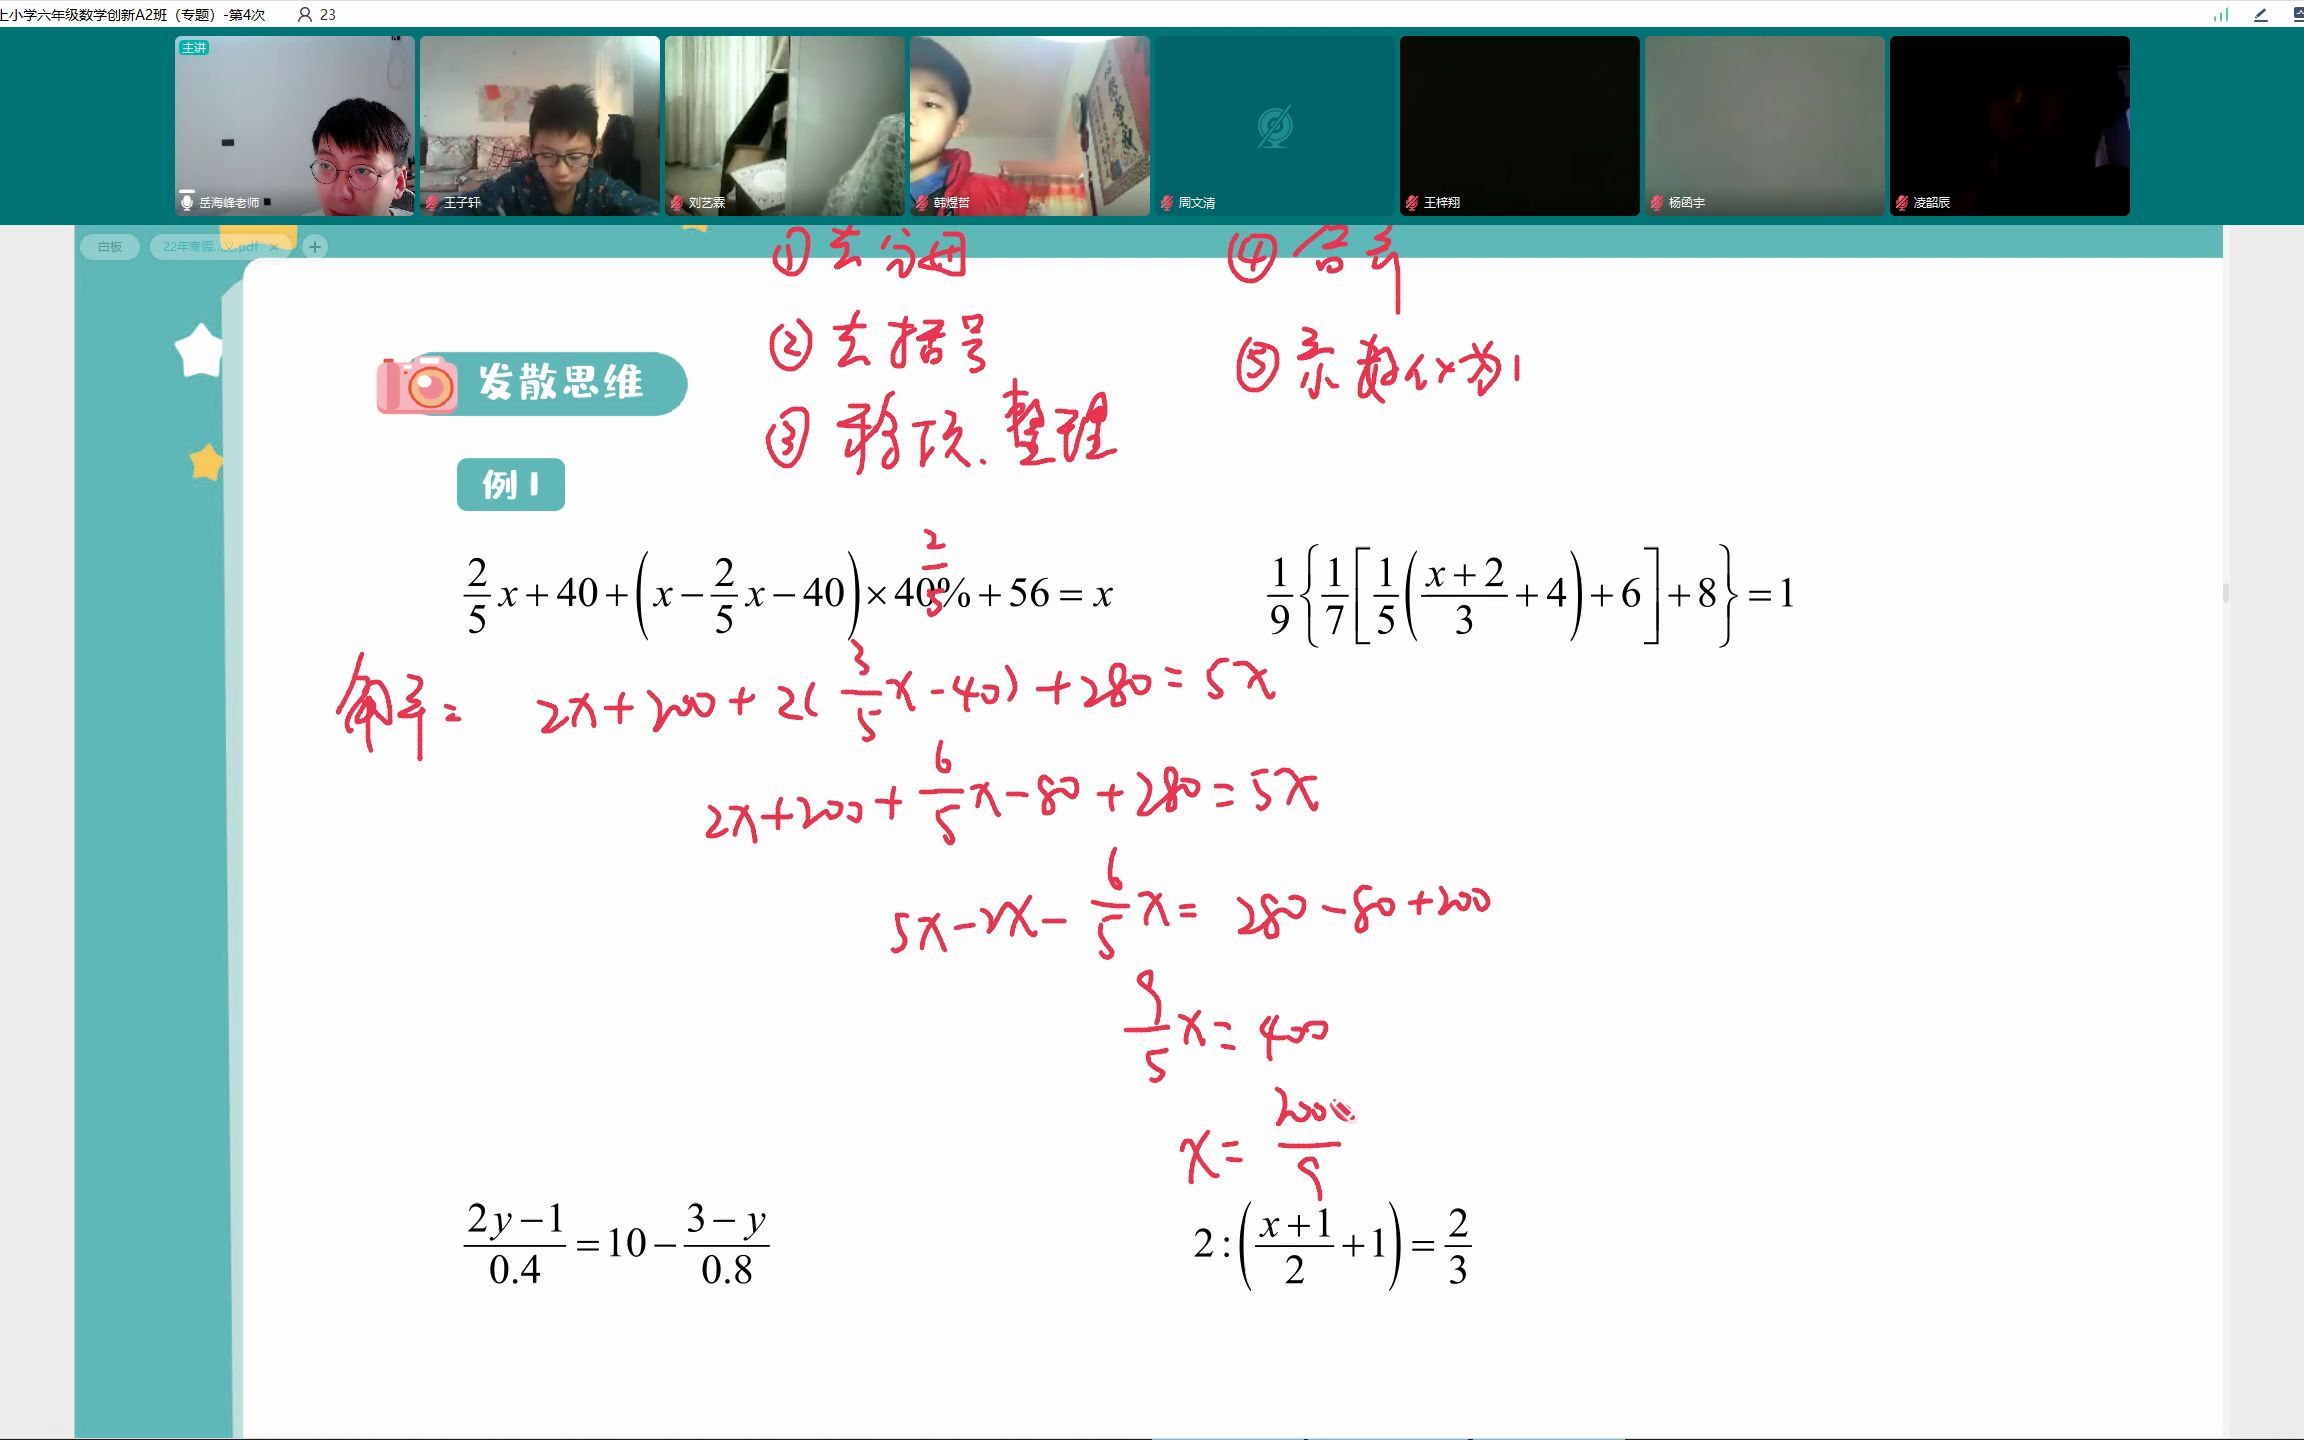 上小学六年级数学创新A2班（专题）-第4次 23
主讲
岳海峰老师 王子轩 刘艺霖 韩煜哲 周文清 王梓翔 杨函宇 凌韶辰
白板 22年寒假...义.pdf × +
① 去分母 ④ 合并
② 去括号 ⑤ 系数化为1
③ 移项、整理
发散思维
例1
2/5
2/5 x+40+(x−2/5 x−40)×40%+56=x
1/9{1/7[1/5((x+2)/3+4)+6]+8}=1
解: 2x+200+2(3/5 x-40)+280=5x
2x+200+6/5 x-80+280=5x
5x-2x-6/5 x=280-80+200
9/5 x=400
x=2000/9
(2y−1)/0.4=10−(3−y)/0.8
2:((x+1)/2+1)=2/3